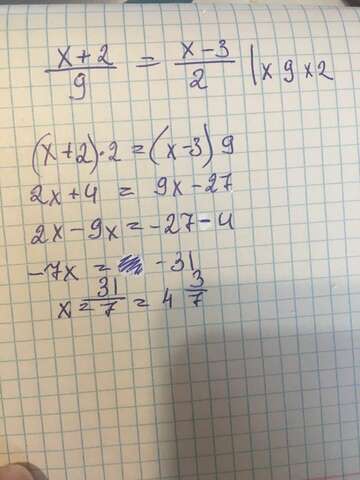 x+2/9 = x-3/2 | x 9 x 2
(x+2)·2=(x-3)9
2x+4 = 9x-27
2x-9x=-27-4
-7x = -31
x=31/7 = 4 3/7